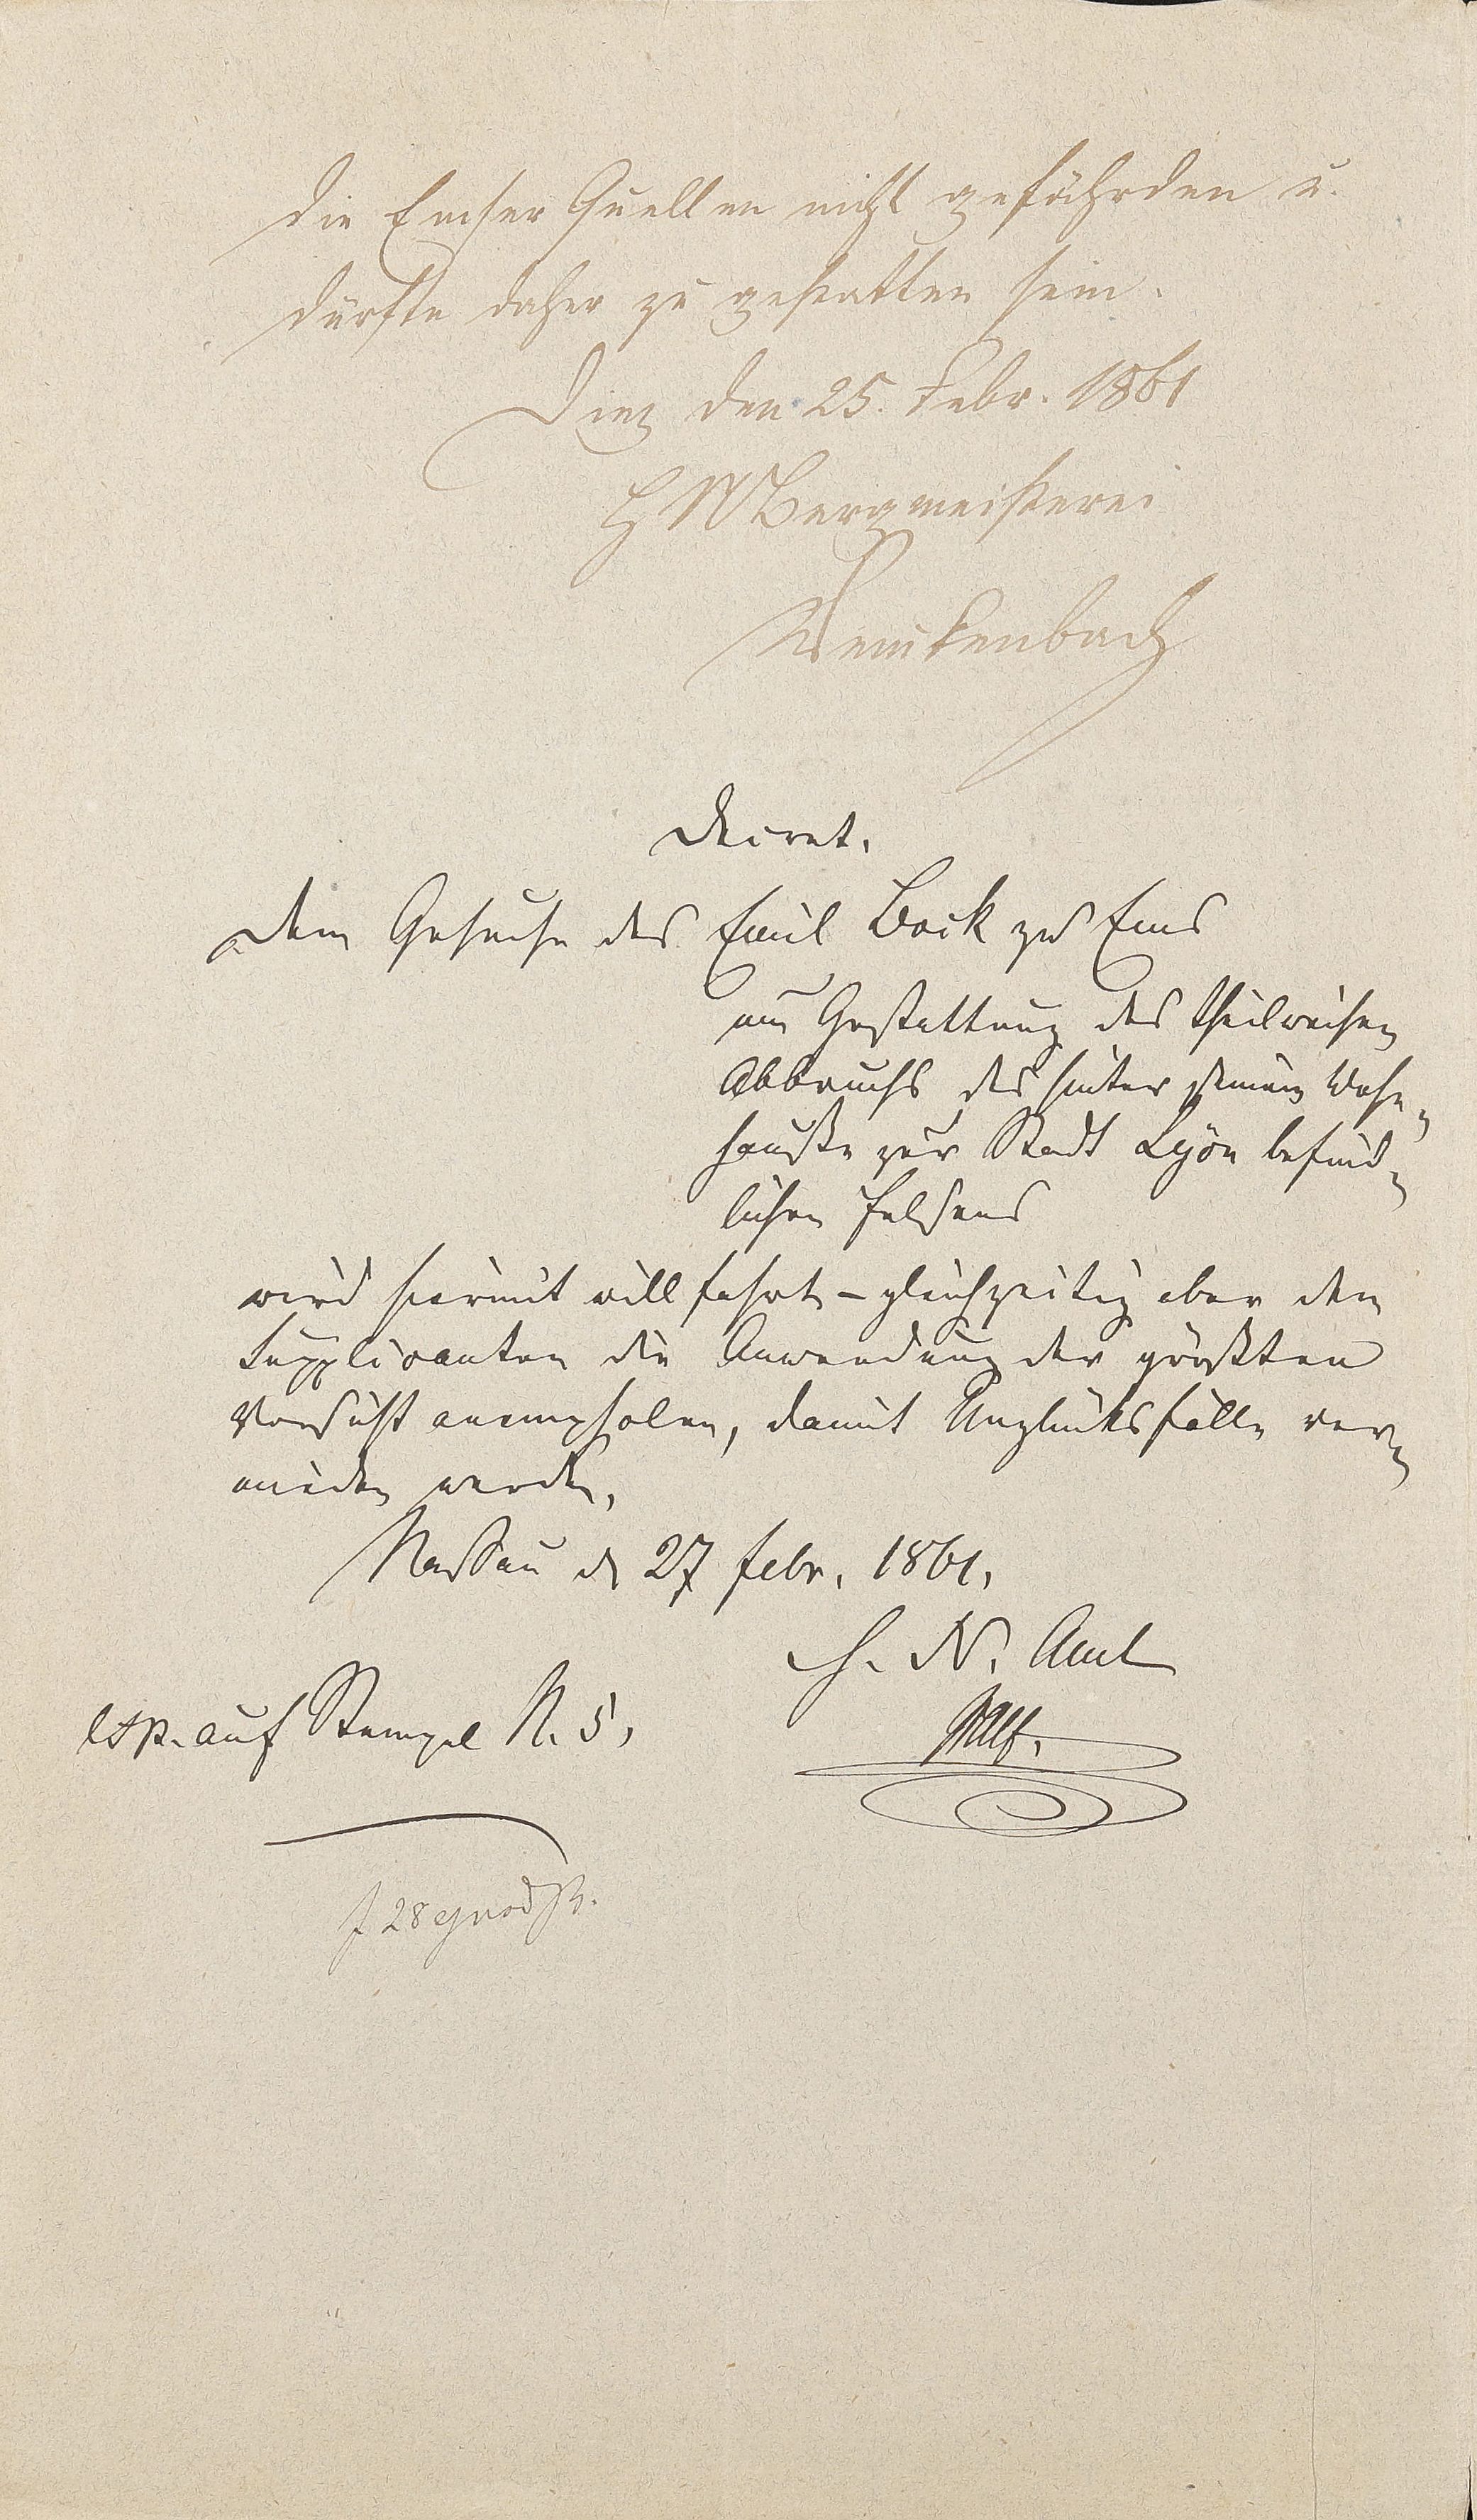 die Emser Quellen nicht gefährden u.
dürfte daher zu gestatten sein.
Diez den 25. Febr. 1861
H N Bergmeisterei
Wenkenbach
Decret.
Dem Gesuche des Emil Bock zu Ems
um Gestattung des theilweisen
Abbruchs des hinter seinem Wohn-
hauße zur Stadt Lyon befind-
lichen Felsens
wird hiermit willfahrt – gleichzeitig aber dem
Supplicanten die Anwendung der größten
Vorsicht anempfolen, damit Unglücksfälle ver-
mieden werden.
Nassau d. 27 Febr. 1861.
H. N. Amt
auf Stempel N. 5,
28